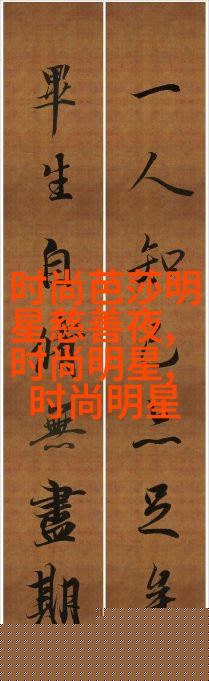 一人知己亦足矣
畢生自修無盡期
时尚芭莎明
星慈善夜,
时尚明星,
时尚明星